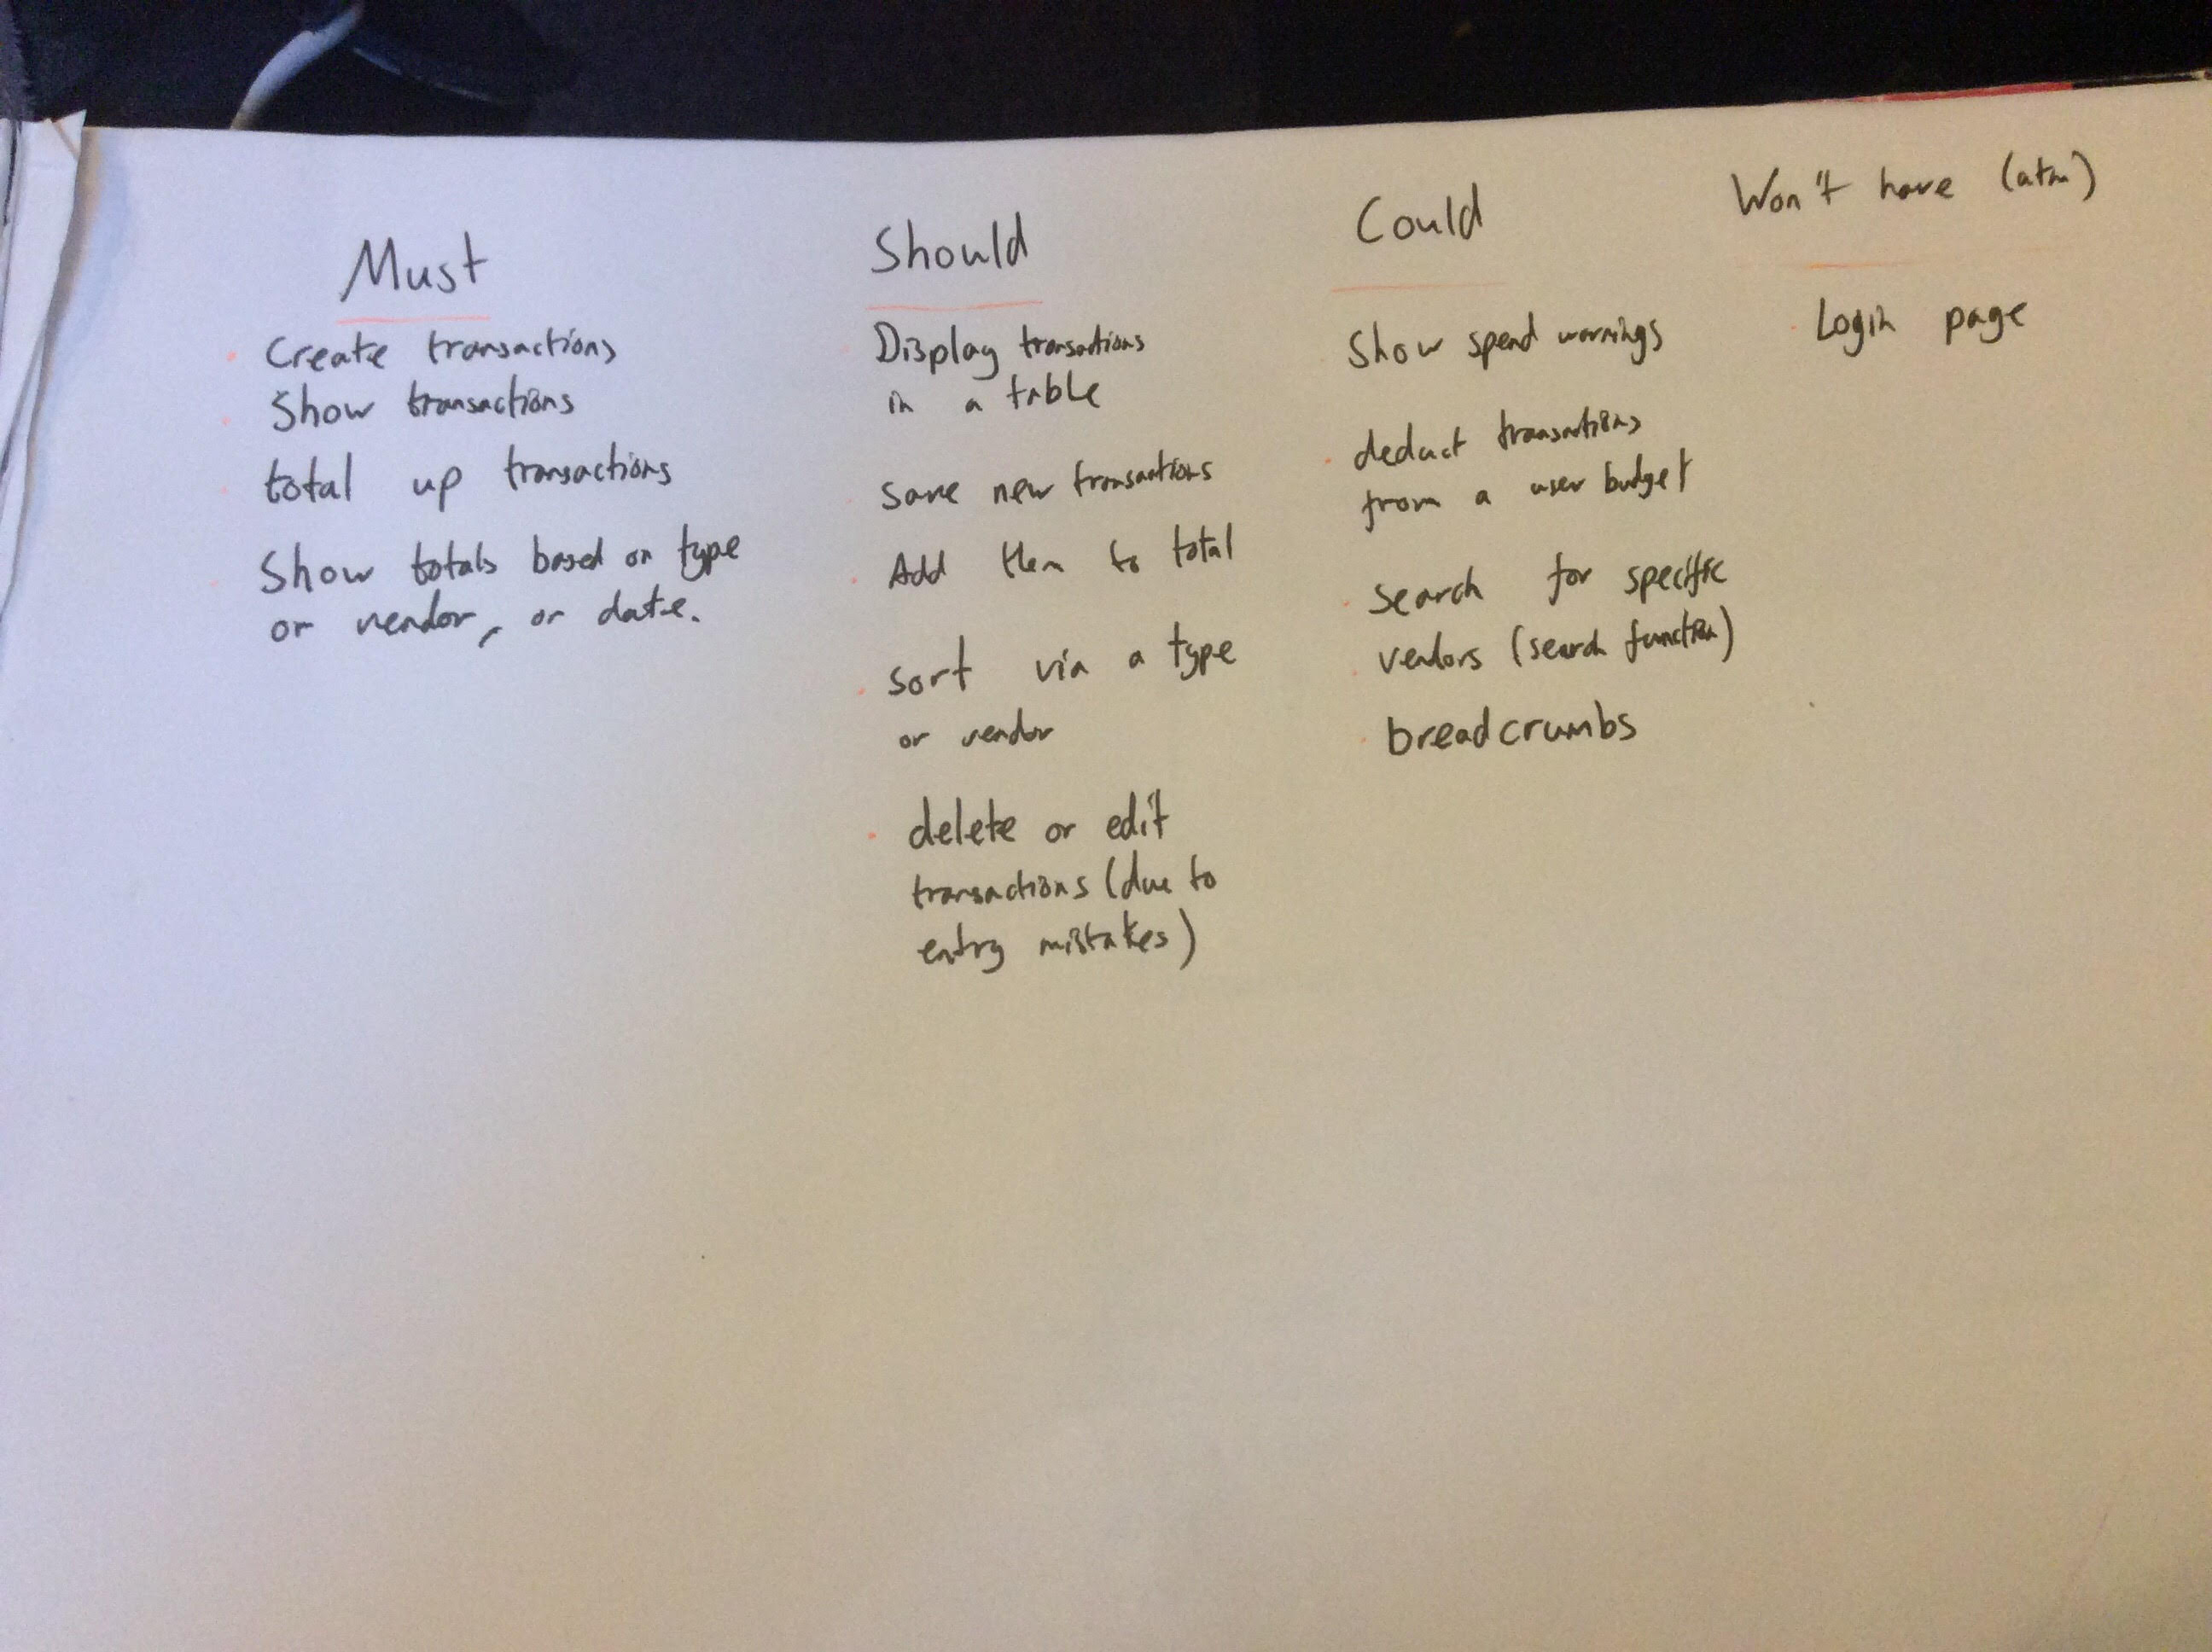 Must
Create transactions
Show transactions
total up transactions
Show totals based on type
or vendor, or date.
Should
Display transactions
in a table
Save new transactions
Add them to total
sort via a type
or vendor
delete or edit
transactions (due to
entry mistakes)
Could
Show spend warnings
deduct transactions
from a user budget
search for specific
vendors (search function)
breadcrumbs
Won't have (atm)
Login page